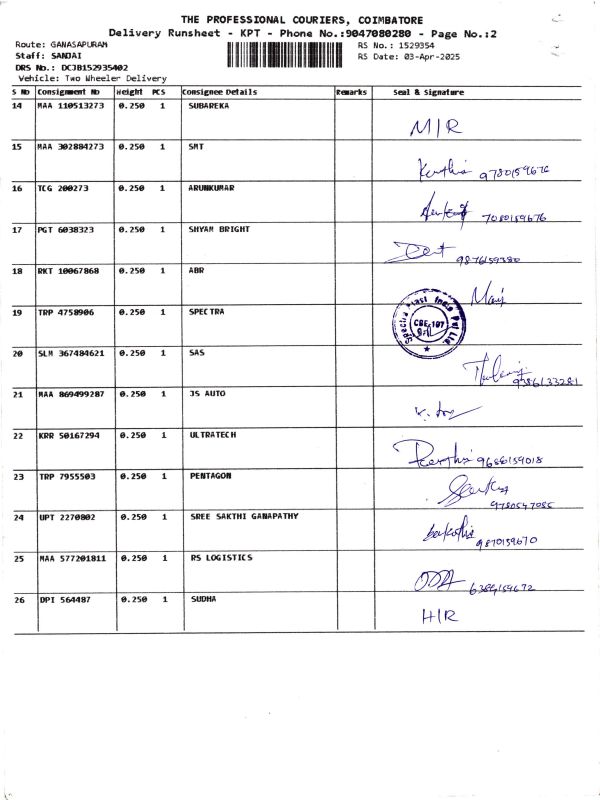 THE PROFESSIONAL COURIERS, COIMBATORE
Delivery Runsheet - KPT - Phone No.:9047080280 - Page No.:2
Route: GANASAPURAM
RS No.: 1529354
Staff: SANDAI
RS Date: 03-Apr-2025
DRS No.: DCJB152935402
Vehicle: Two Wheeler Delivery
S No Consignment No Weight PCS Consignee Details Remarks Seal & Signature
14 MAA 110513273 0.250 1 SUBAREKA
M/R
15 MAA 302884273 0.250 1 SMT
9780159676
16 TCG 200273 0.250 1 ARUNKUMAR
7080159676
17 PGT 6038323 0.250 1 SHYAM BRIGHT
9876159380
18 RKT 10067868 0.250 1 ABR
19 TRP 4758906 0.250 1 SPECTRA
Spectra Plast India Pvt Ltd.
CBE-197
20 SLM 367484621 0.250 1 SAS
9386133281
21 MAA 869499287 0.250 1 JS AUTO
22 KRR 50167294 0.250 1 ULTRATECH
9688159018
23 TRP 7955503 0.250 1 PENTAGON
9780547085
24 UPT 2270802 0.250 1 SREE SAKTHI GANAPATHY
9870159670
25 MAA 577201811 0.250 1 RS LOGISTICS
6389159672
26 DPI 564487 0.250 1 SUDHA
H/R